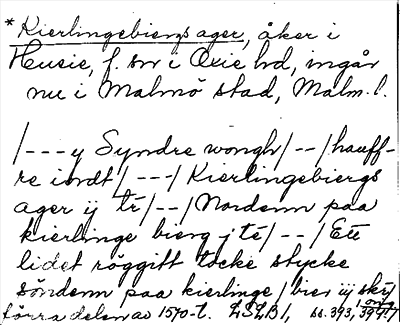 * Kierlingebiergs ager, åker i
Husie, f. sn i Oxie hd, ingår
nu i Malmö stad, Malm. l.
/---y Syndre wongh/--/hauff-
re iordt/---/Kierlingebiergs
ager ij té/--/Nordenn paa
kierlinge bierg j té/--/Ett
lidet röggitt tocke stycke
söndenn paa kierlinge/bier iij skey
förra delen av 1570-t. LSLB1, ss. 393, 394 f